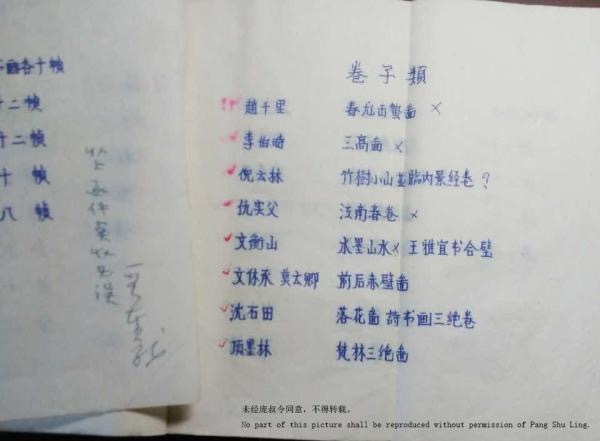 画各十帧
十二帧
十二帧
十 帧
八 帧
卷子類
趙千里 春龙出蟄啚 ×
李伯时 三高啚 ×
倪云林 竹樹小山並臨内景经卷 ?
仇实父 江南春卷 ×
文衡山 水墨山水× 王雅宜书合璧
文休承 莫云卿 前后赤壁啚
沈石田 落花啚 詩书画三绝卷
項墨林 梵林三绝啚
未经庞叔令同意，不得转载。
No part of this picture shall be reproduced without permission of Pang Shu Ling.